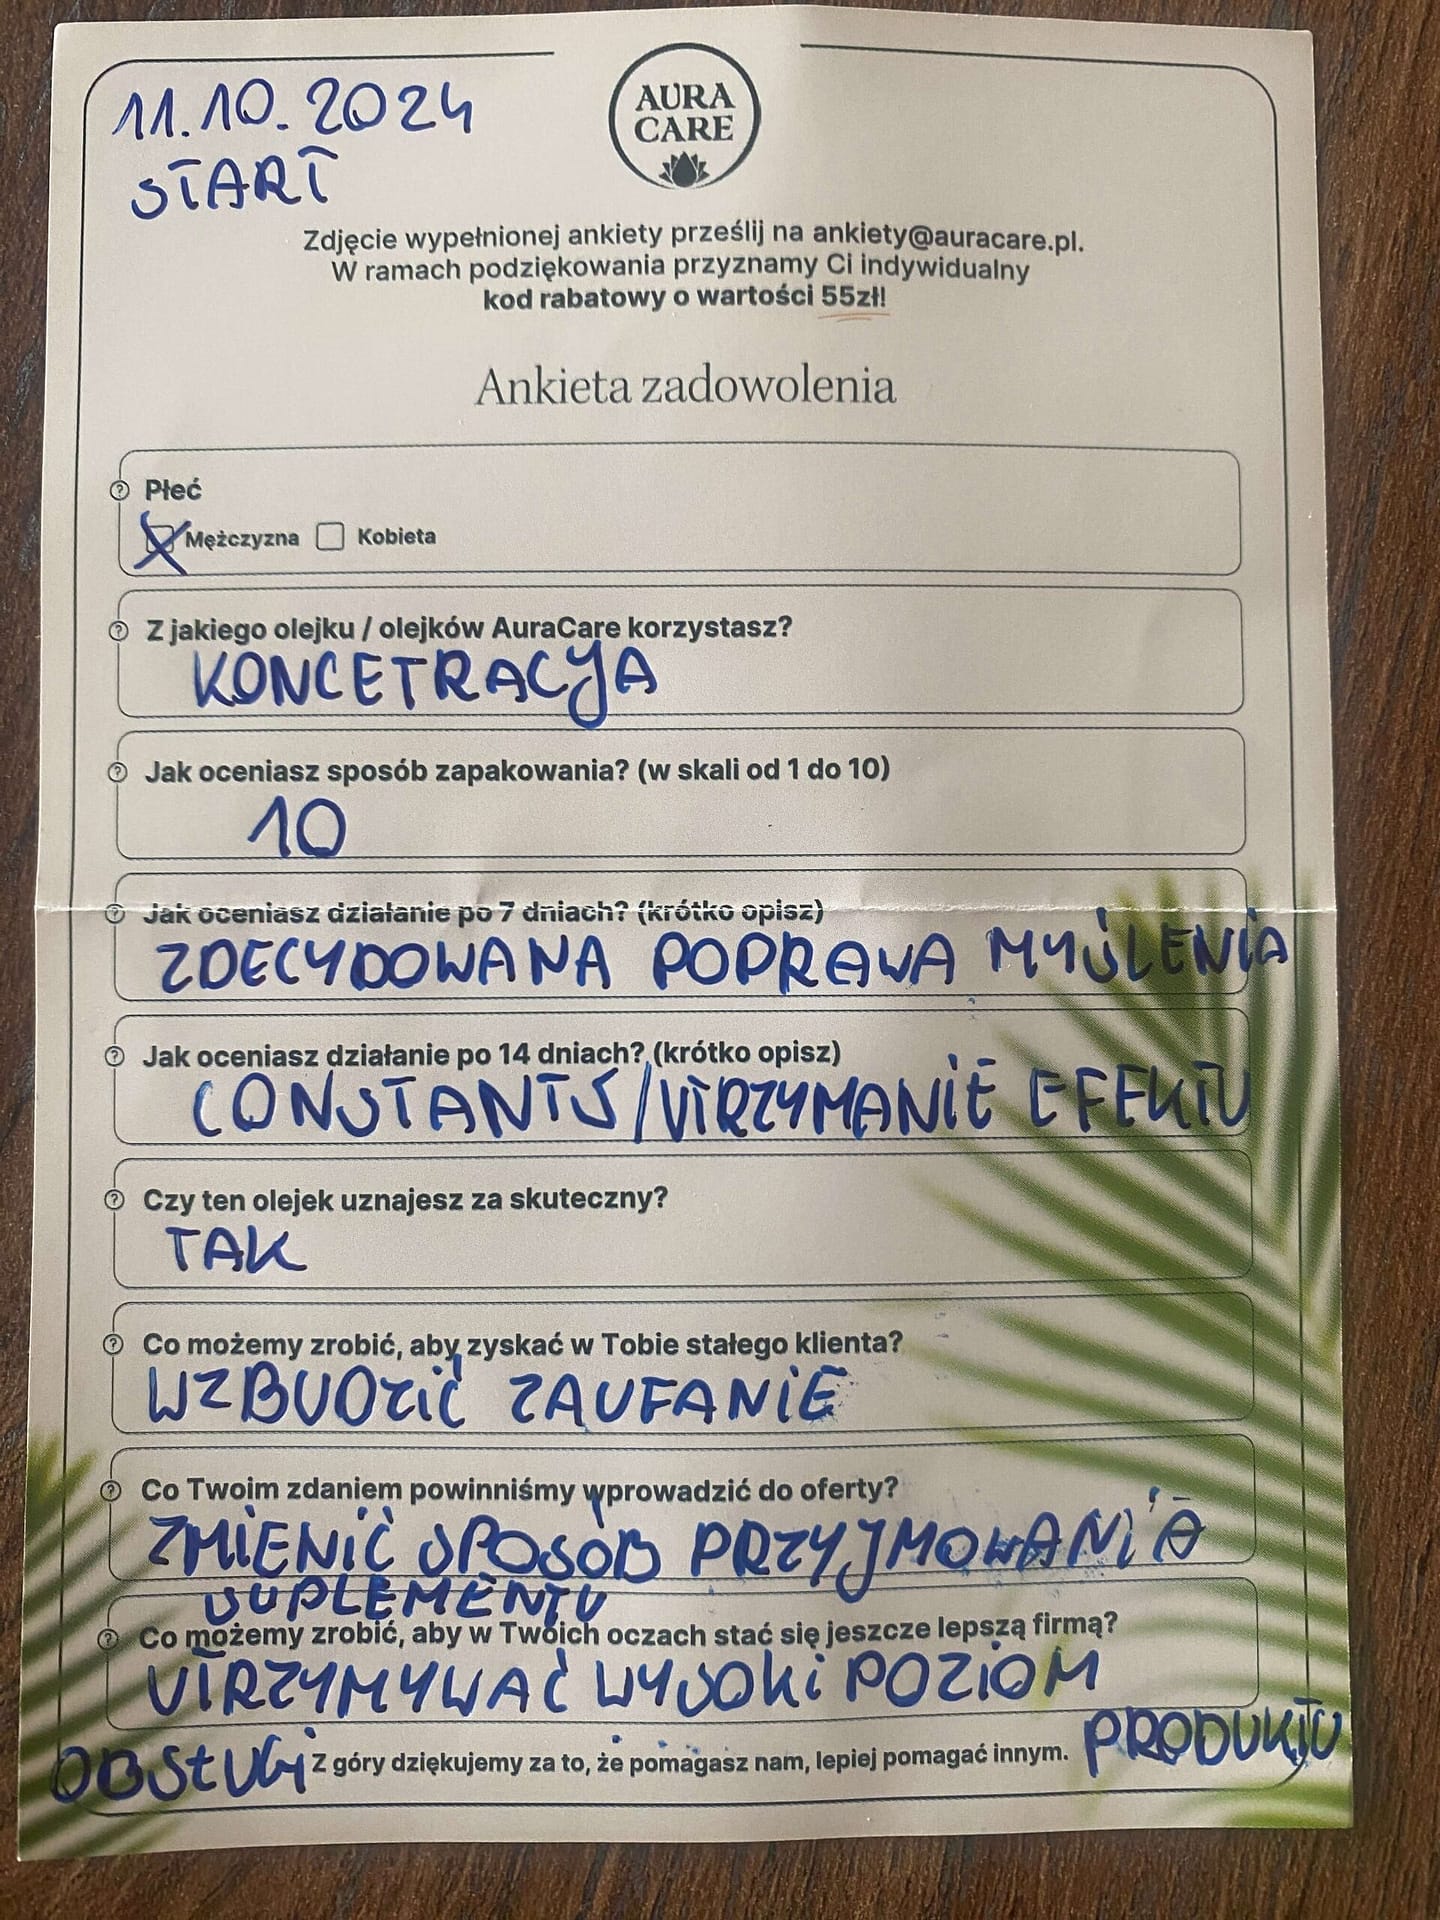 11.10.2024
START
AURA
CARE
Zdjęcie wypełnionej ankiety prześlij na ankiety@auracare.pl.
W ramach podziękowania przyznamy Ci indywidualny
kod rabatowy o wartości 55zł!
Ankieta zadowolenia
Płeć
Mężczyzna Kobieta
Z jakiego olejku / olejków AuraCare korzystasz?
KONCETRACJA
Jak oceniasz sposób zapakowania? (w skali od 1 do 10)
10
Jak oceniasz działanie po 7 dniach? (krótko opisz)
ZDECYDOWANA POPRAWA MYŚLENIA
Jak oceniasz działanie po 14 dniach? (krótko opisz)
CONSTANTS/UTRZYMANIE EFEKTU
Czy ten olejek uznajesz za skuteczny?
TAK
Co możemy zrobić, aby zyskać w Tobie stałego klienta?
WZBUDZIĆ ZAUFANIE
Co Twoim zdaniem powinniśmy wprowadzić do oferty?
ZMIENIĆ SPOSÓB PRZYJMOWANIA
SUPLEMENTU
Co możemy zrobić, aby w Twoich oczach stać się jeszcze lepszą firmą?
UTRZYMYWAĆ WYSOKI POZIOM
PRODUKTU
OBSŁUGI
Z góry dziękujemy za to, że pomagasz nam, lepiej pomagać innym.